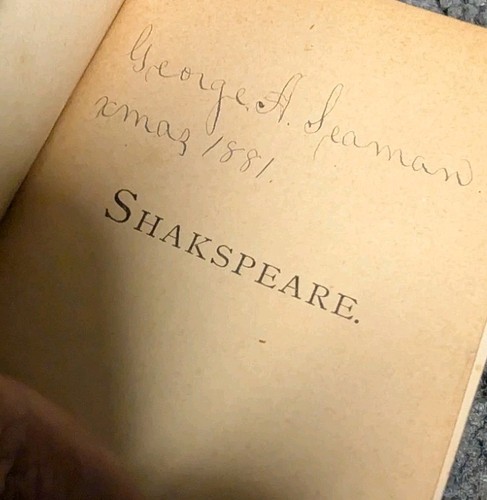 George A. Seaman.
xmas 1881.
SHAKSPEARE.